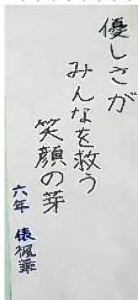 優しさが
みんなを救う
笑顔の芽
六年 俵楓華